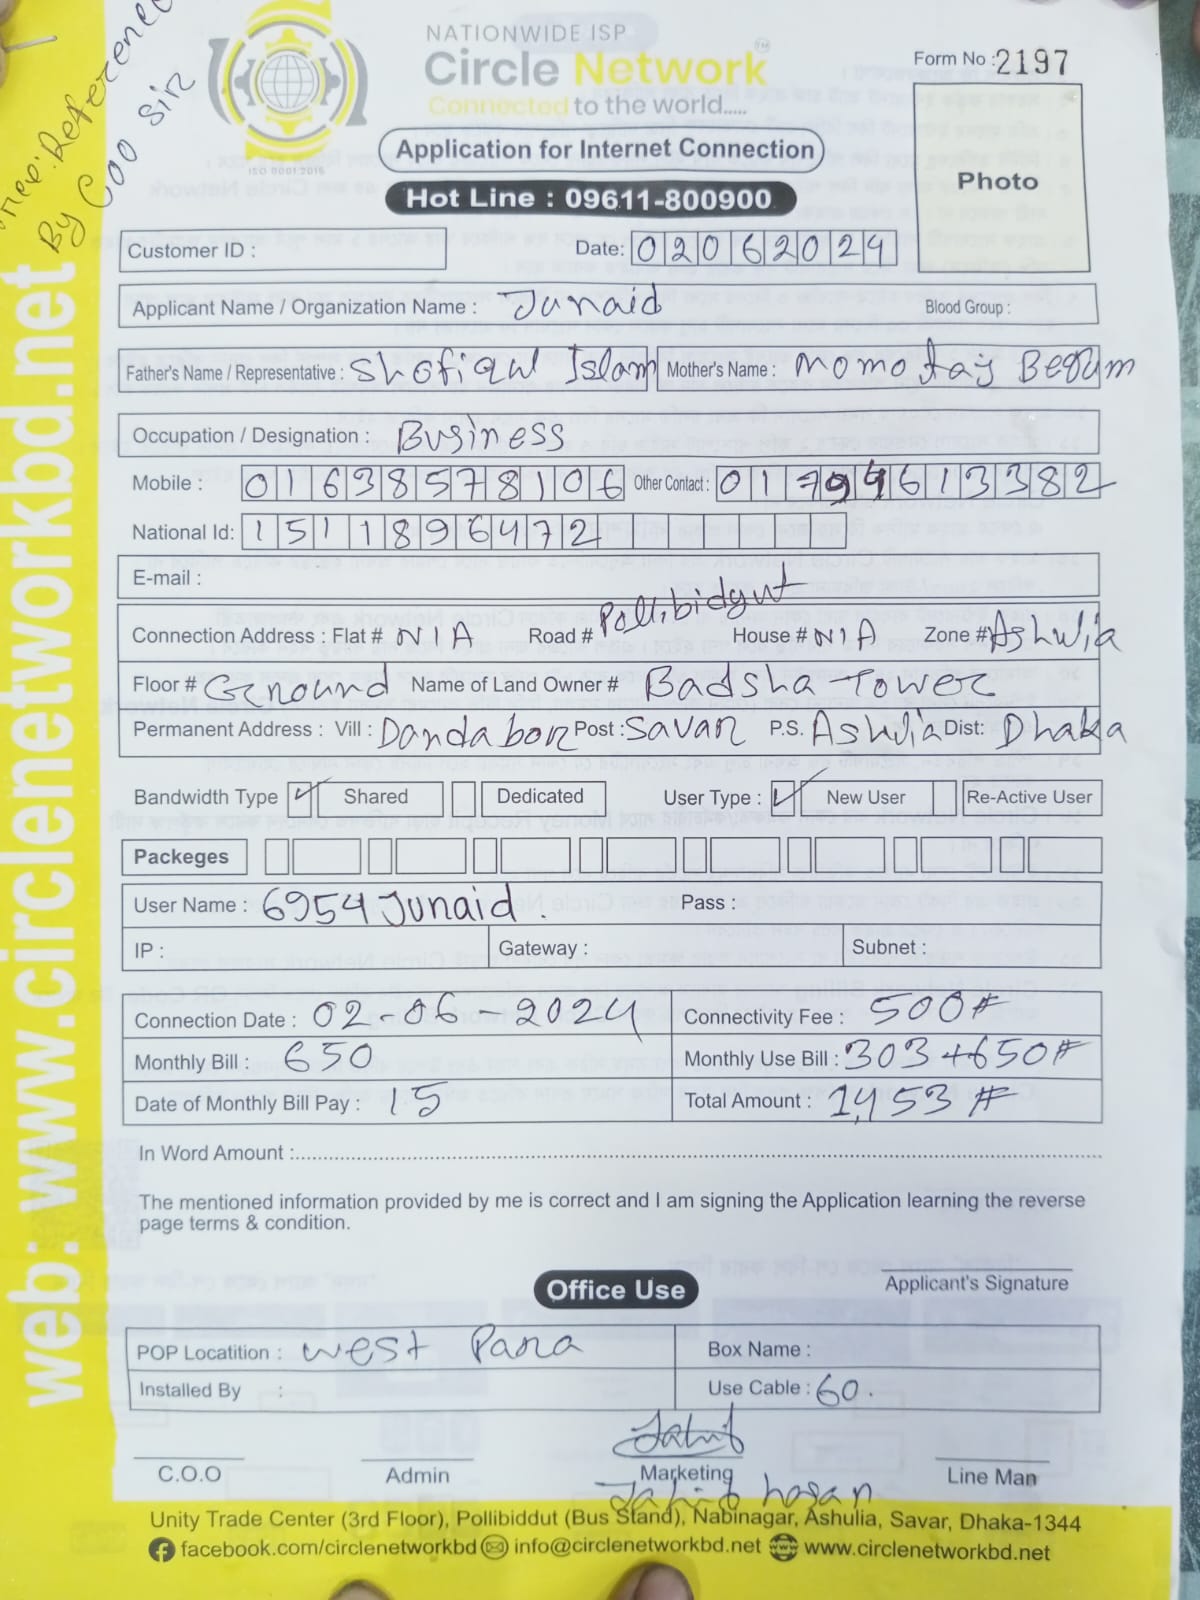 Reference
By Coo sir
NATIONWIDE ISP
Circle Network
TM
Connected to the world.....
ISO 9001:2015
Form No : 2197
Application for Internet Connection
Hot Line : 09611-800900
Photo
Customer ID :
Date: 02062024
Applicant Name / Organization Name : Junaid Blood Group :
Father's Name / Representative : Shofiqul Islam Mother's Name : Momotaj Begum
Occupation / Designation : Business
Mobile : 01638578106 Other Contact : 01794613382
National Id: 1511896472
E-mail :
Connection Address : Flat # N/A Road # Pollibidyut House # N/A Zone # Ashulia
Floor # Ground Name of Land Owner # Badsha Tower
Permanent Address : Vill : Dandabor Post : Savar P.S. Ashulia Dist: Dhaka
Bandwidth Type ✓ Shared Dedicated User Type : ✓ New User Re-Active User
Packeges
User Name : 6954Junaid. Pass :
IP : Gateway : Subnet :
Connection Date : 02-06-2024 Connectivity Fee : 500#
Monthly Bill : 650 Monthly Use Bill : 303+650#
Date of Monthly Bill Pay : 15 Total Amount : 1,453 #
In Word Amount :
The mentioned information provided by me is correct and I am signing the Application learning the reverse
page terms & condition.
Applicant's Signature
Office Use
POP Locatition : West Para Box Name :
Installed By : Use Cable : 60.
C.O.O Admin Marketing Line Man
Jahid hasan
Unity Trade Center (3rd Floor), Pollibiddut (Bus Stand), Nabinagar, Ashulia, Savar, Dhaka-1344
facebook.com/circlenetworkbd info@circlenetworkbd.net www.circlenetworkbd.net
web: www.circlenetworkbd.net